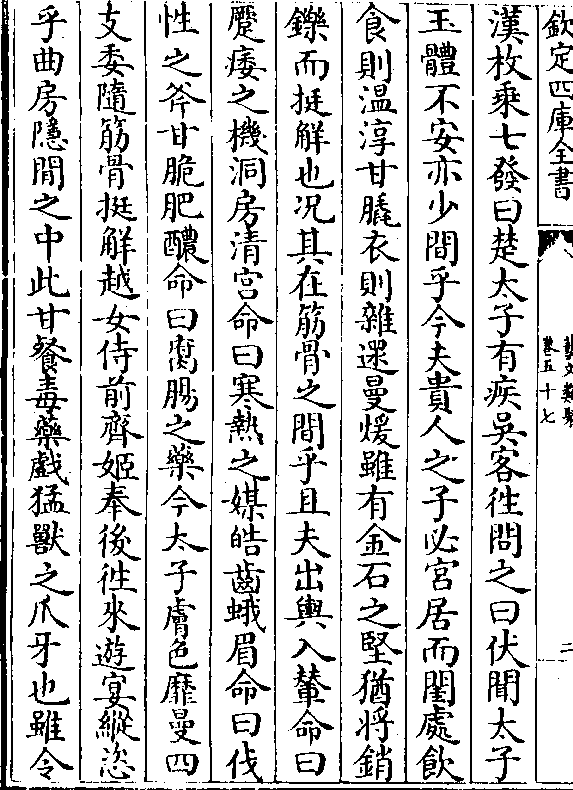 欽定四庫全書
藝文類聚
卷五十七
二
漢枚乘七發曰楚太子有疾吳客徃問之曰伏聞太子
玉體不安亦少間乎今夫貴人之子必宮居而閨處飲
食則温淳甘膬衣則雜遝曼煖雖有金石之堅猶將銷
鑠而挺解也况其在筋骨之間乎且夫出輿入輦命曰
蹷痿之機洞房清宫命曰寒熱之媒皓齒蛾眉命曰伐
性之斧甘脆肥醲命曰腐腸之藥今太子膚色靡曼四
支委隨筋骨挺解越女侍前齊姬奉後徃來遊宴縱恣
乎曲房隱閒之中此甘餐毒藥戲猛獸之爪牙也雖令